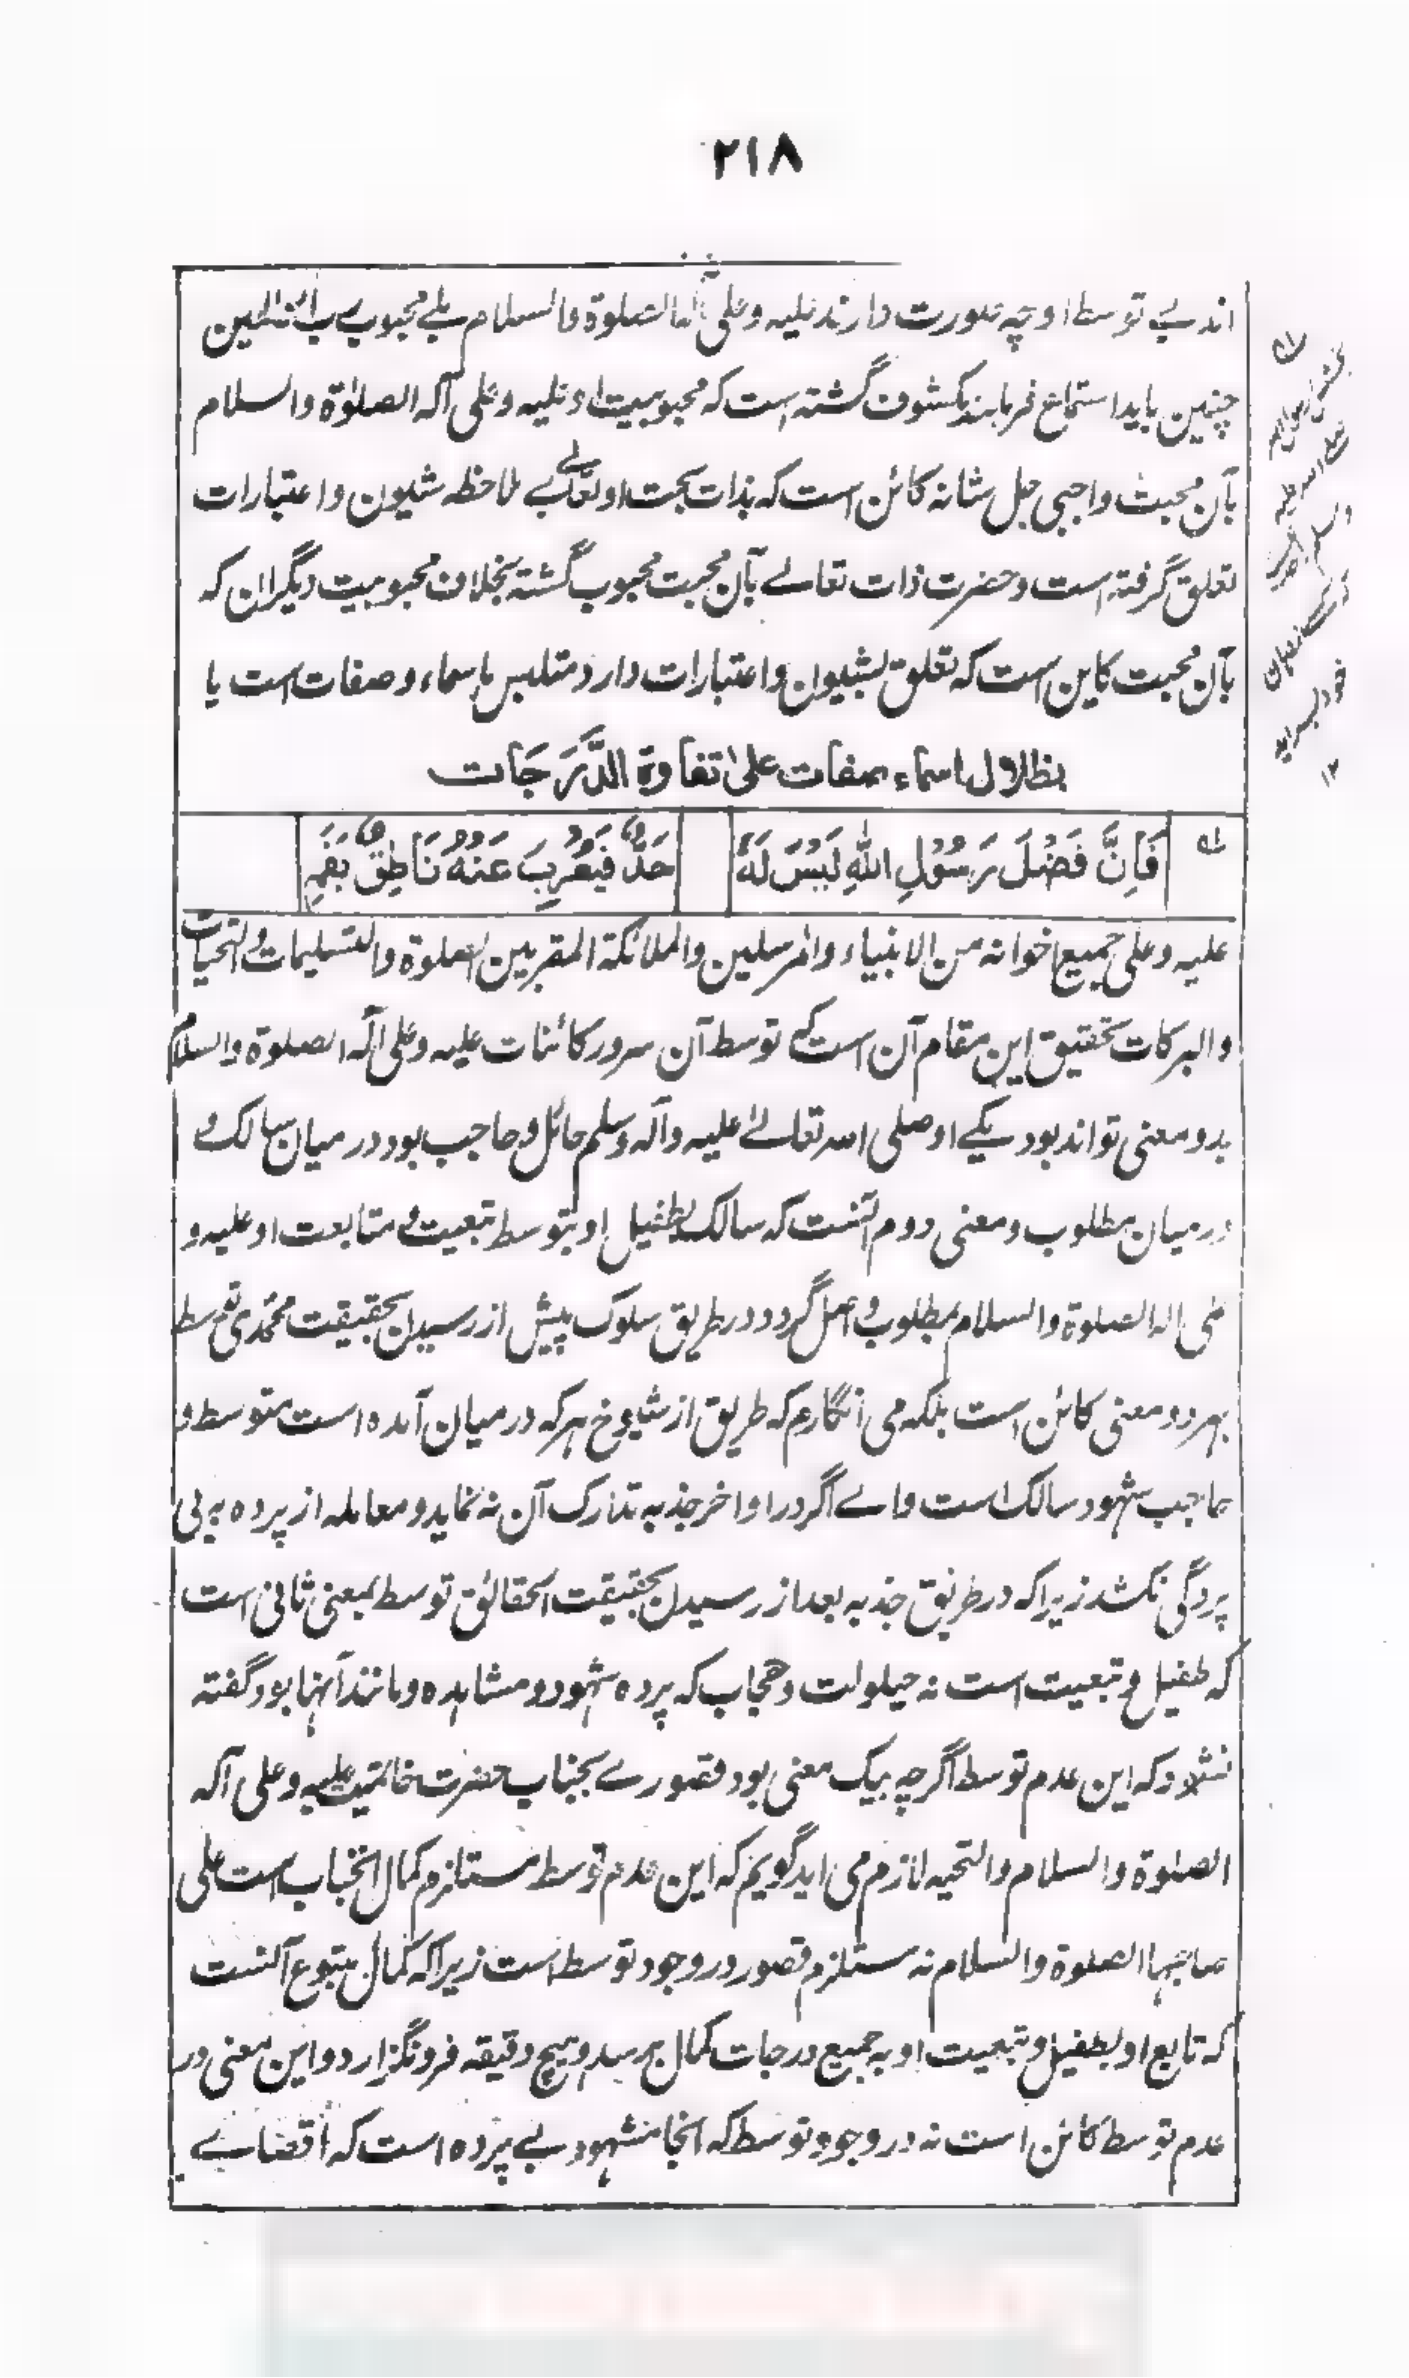 ۲۱۸
اند بے توسط او چہ صورت دارند علیہ وعلی آلہ الصلوۃ والسلام بلے محبوب رب العالمین
چنین باید استماع فرمایند مکشوف گشتہ است کہ محبوبیت او علیہ وعلی آلہ الصلوٰۃ والسلام
بآن محبت واجبی جل شانہ کائن است کہ بذات بحت او تعالٰے بے ملاحظہ شیون واعتبارات
تعلق گرفتہ است وحضرت ذات تعالے بآن محبت محبوب گشتہ بخلاف محبوبیت دیگران کہ
بآن محبت کاین است کہ تعلق بشیون واعتبارات دارد متلبس باسماء وصفات است یا
بظلال اسماء صفات علیٰ تفاوۃ الدَّرَجَات
فَاِنَّ فَضْلَ رَسُوْلِ اللّٰہِ لَیْسَ لَہٗ
حَدٌّ فَیُعْرِبَ عَنْہُ نَاطِقٌ بِفَمٖ
علیہ وعلی جمیع اخوانہ من الانبیاء والمرسلین والملائکۃ المقربین الصلوۃ والتسلیمات والتحیات
والبرکات تحقیق این مقام آن است کہ توسط آن سرور کائنات علیہ وعلی آلہ الصلوۃ والسلام
بدو معنی تواند بود یکے او صلی اللہ تعالےٰ علیہ وآلہ وسلم حائل وحاجب بود درمیان سالک و
درمیان مطلوب ومعنی دوم آنست کہ سالک بطفیل او بتوسط تبعیت و متابعت او علیہ و
علی الہ الصلوۃ والسلام بمطلوب واصل گردد ودر طریق سلوک پیش از رسیدن بحقیقت محمدی توسط
بہر دو معنی کائن است بلکہ می انگارم کہ طریق از شیوخ ہر کہ درمیان آمدہ است متوسط و
حاجب شہود سالک است واے اگر در اواخر جذبہ تدارک آن نہ نماید ومعاملہ از پردہ بہ بی
پردگی نکشد زیراکہ در طریق جذبہ بعد از رسیدن بحقیقت الحقائق توسط بمعنی ثانی است
کہ طفیل و تبعیت است نہ حیلولت وحجاب کہ پردہ شہود ومشاہدہ ومانند آنہا بود گفتہ
نشود کہ این عدم توسط اگرچہ بیک معنی بود قصورے بجناب حضرت خاتمیت علیہ وعلی آلہ
الصلوۃ والسلام والتحیہ لازم می اید گویم کہ این عدم توسط مستلزم کمال انجناب است علی
صاحبہا الصلوۃ والسلام نہ مستلزم قصور در وجود توسط است زیراکہ کمال متبوع آنست
کہ تابع او بطفیل و تبعیت او بہ جمیع درجات کمال برسد وہیچ دقیقہ فرو نگزارد واین معنی در
عدم توسط کائن است نہ در وجود توسط کہ انجا شہود بے پردہ است کہ اقصاے